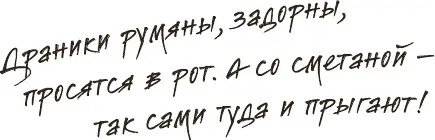 Драники румяны, задорны,
просятся в рот. А со сметаной –
так сами туда и прыгают!